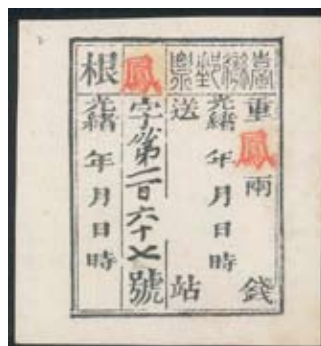 臺灣郵票
重鳳兩錢
光緒年月日時
送站
鳳字第一百六十七號
根
光緒年月日時